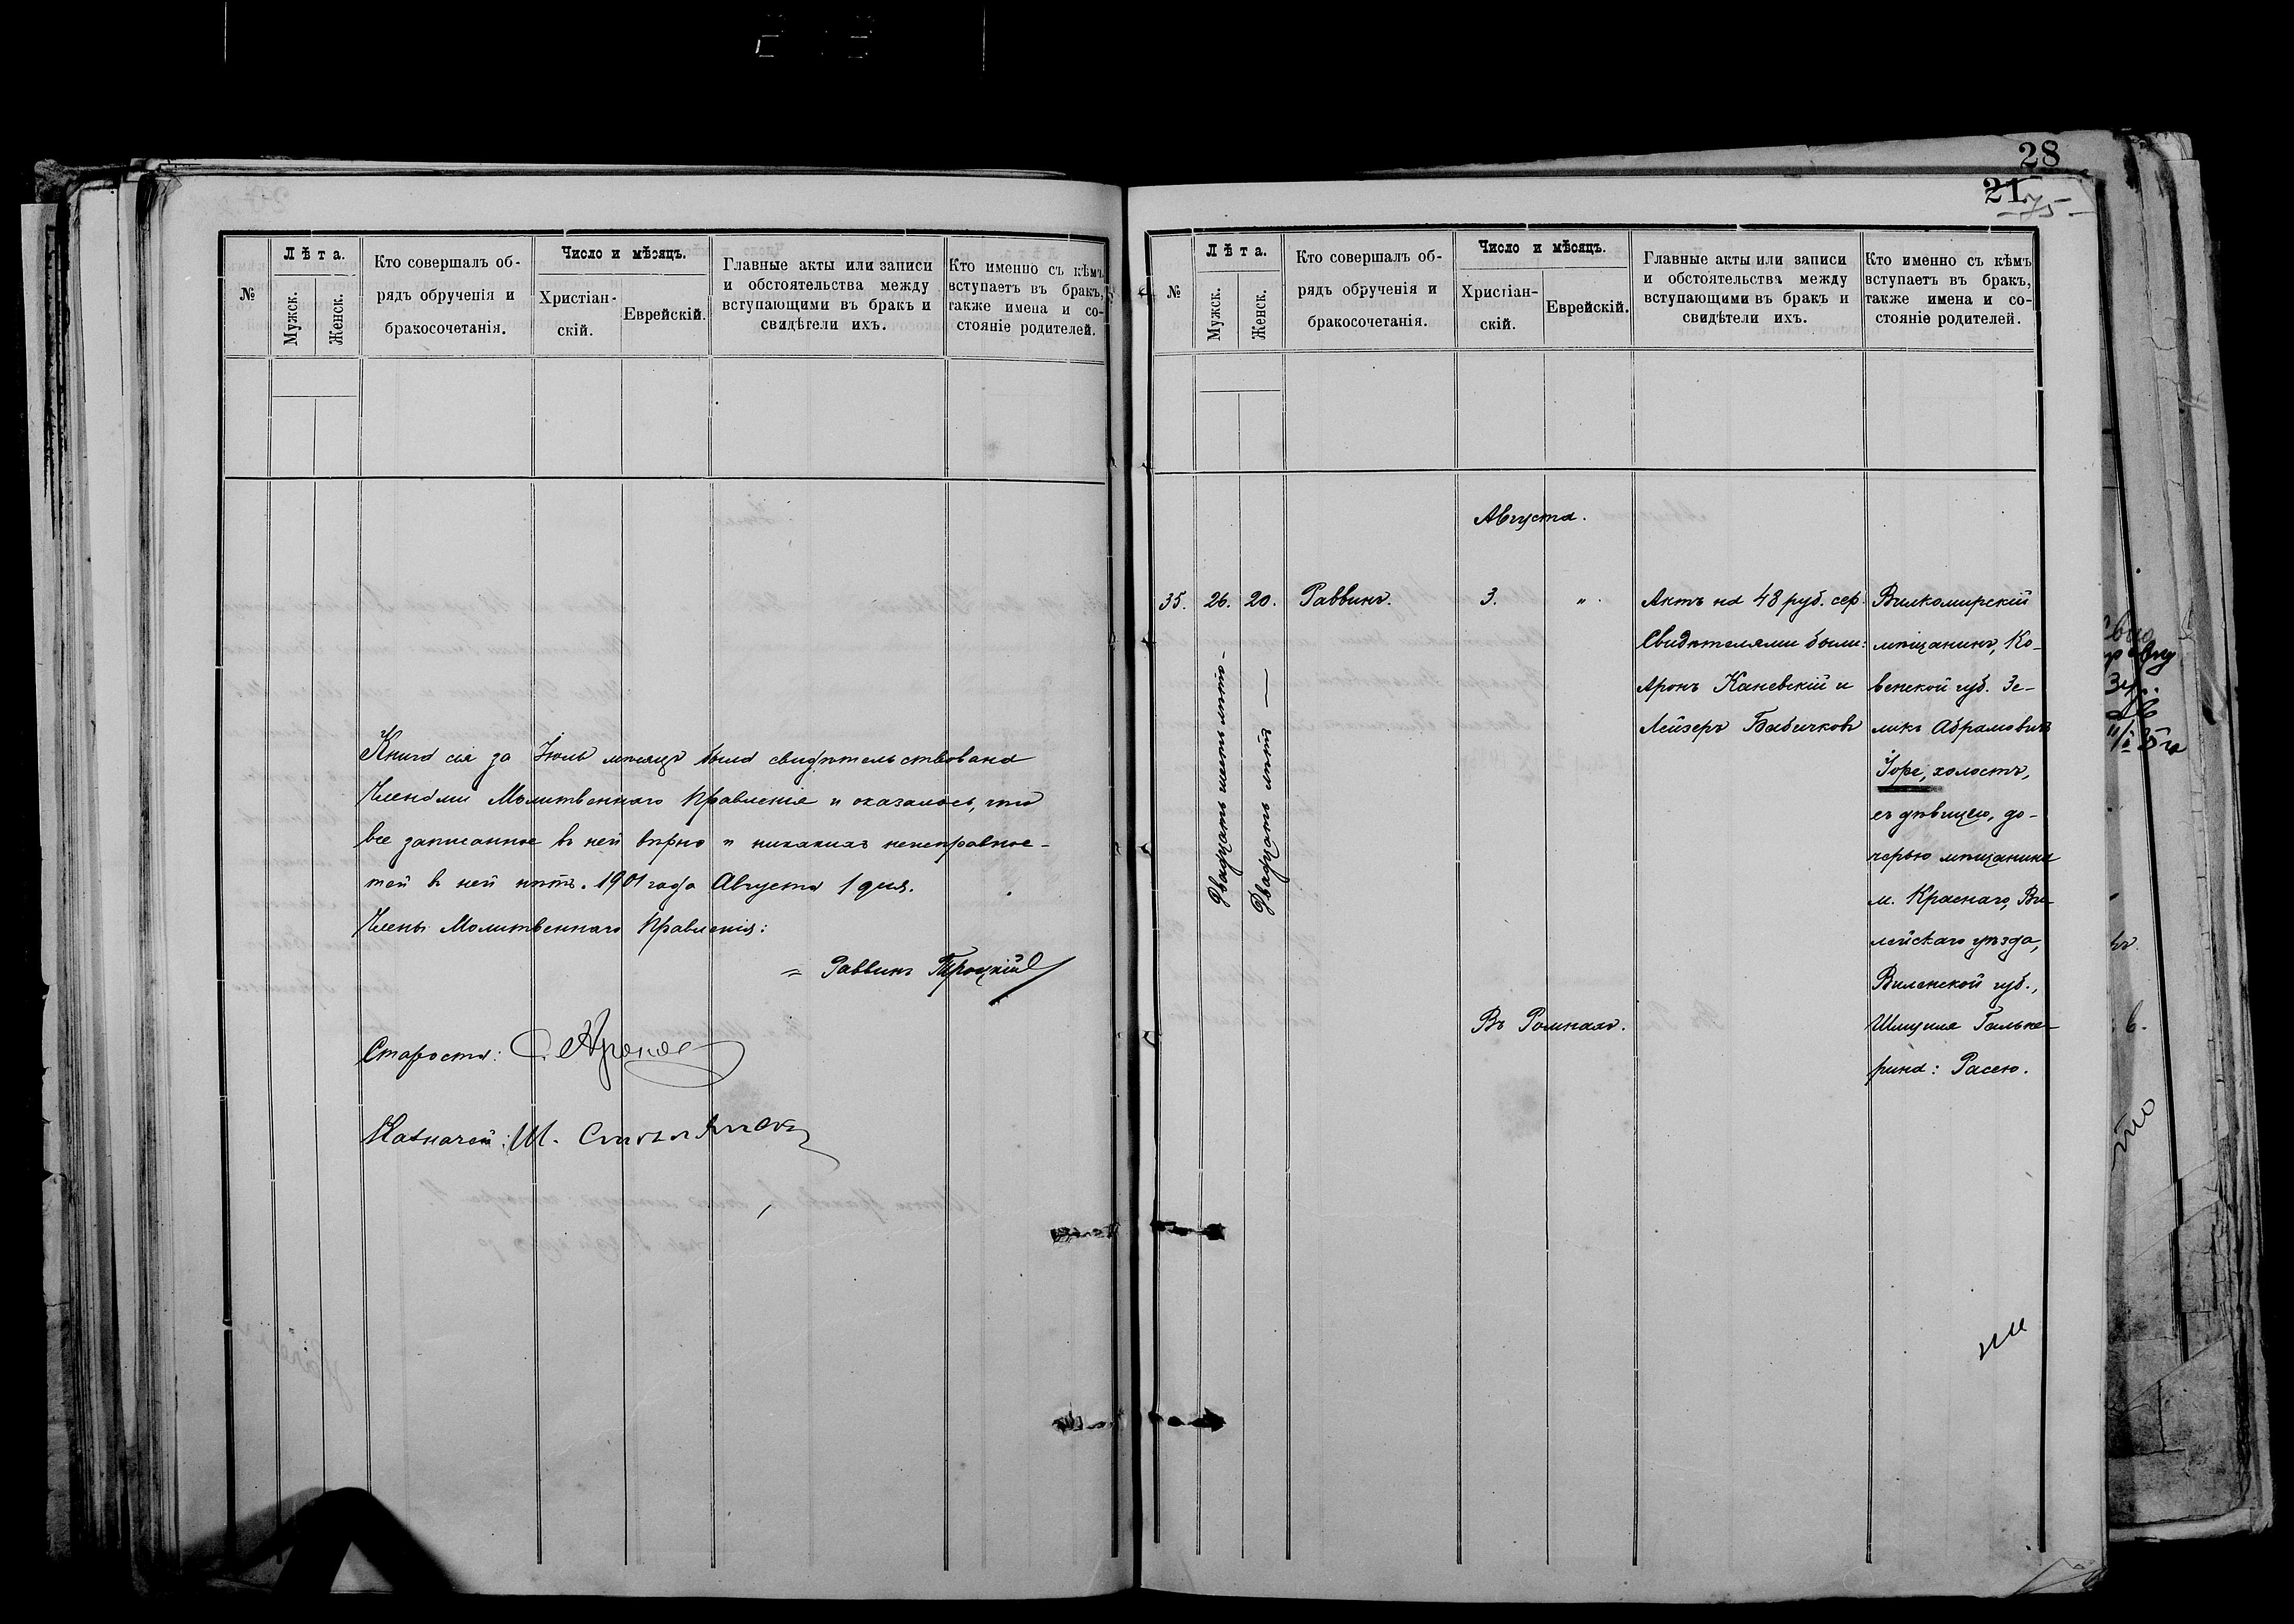 №
Лѣта.
Мужск.
Женск.
Кто совершалъ об-
рядъ обрученія и
бракосочетанія.
Число и мѣсяцъ.
Христіан-
скій.
Еврейскій.
Главные акты или записи
и обстоятельства между
вступающими въ бракъ и
свидѣтели ихъ.
Кто именно съ кѣмъ
вступаетъ въ бракъ,
также имена и со-
стояніе родителей.
Книга сія за Іюль мѣсяцъ была свидѣтельствована
Членами Молитвеннаго Правленія и оказалось, что
все записанное въ ней вѣрно и никакихъ неисправнос-
тей въ ней нѣтъ. 1901 года Августа 1 дня.
Члены Молитвеннаго Правленія:
= Раввинъ Троцкій
Староста:
Казначей: Ш.
28
21
75
№
Лѣта.
Мужск.
Женск.
Кто совершалъ об-
рядъ обрученія и
бракосочетанія.
Число и мѣсяцъ.
Христіан-
скій.
Еврейскій.
Главные акты или записи
и обстоятельства между
вступающими въ бракъ и
свидѣтели ихъ.
Кто именно съ кѣмъ
вступаетъ въ бракъ,
также имена и со-
стояніе родителей.
Августа.
35.
26.
20.
Двадцать шесть лѣтъ-
Двадцать лѣтъ —
Раввинъ.
3.
".
Въ Ромнахъ.
Актъ на 48 руб. сер.
Свидѣтелями были:
Аронъ Каневскій и
Лейзеръ Бабичковъ
Вилкомирскій
мѣщанинъ, Ко-
венской губ. Зе-
ликъ Абрамовичъ
Іоре, холостъ,
съ дѣвицею, до-
черью мѣщанина
м. Краснаго, Ви-
лейскаго уѣзда,
Виленской губ.,
Шмуила Гальпе-
рина: Расею.